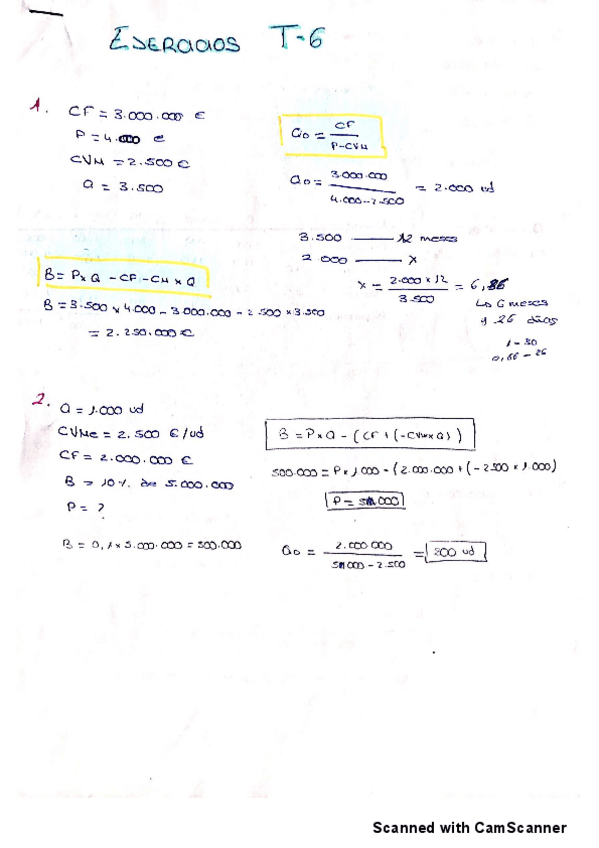 EJERCICIOS T-6
1. CF = 3.000.000 €
P = 4.000 €
CVM = 2.500 €
Q = 3.500
Qo = CF / P-CVM
Qo = 3.000.000 / 4.000-2.500 = 2.000 ud
3.500 —— 12 meses
2.000 —— x
x = 2.000 x 12 / 3.500 = 6,86
Lo 6 meses
y 26 días
1 - 30
0,86 - 26
B = P x Q - CF - CM x Q
B = 3.500 x 4.000 - 3.000.000 - 2.500 x 3.500
= 2.250.000 €
2. Q = 1.000 ud
CVMe = 2.500 €/ud
CF = 2.000.000 €
B → 10% de 5.000.000
P = ?
B = 0,1 x 5.000.000 = 500.000
B = P x Q - (CF + (-CVM x Q))
500.000 = P x 1.000 - (2.000.000 + (-2.500 x 1.000)
P =
Qo = 2.000.000 / - 2.500 = 800 ud
Scanned with CamScanner